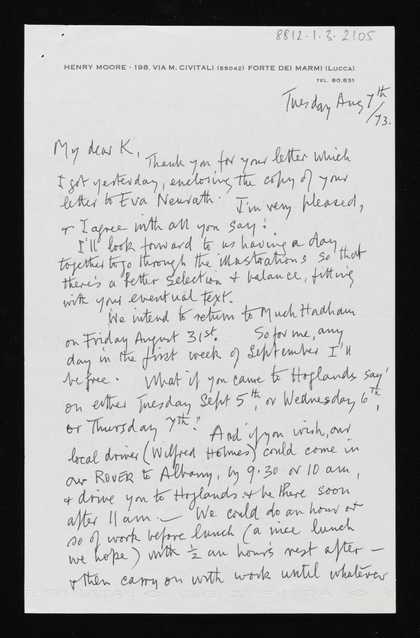 8812-1-3-2105
HENRY MOORE · 198, VIA M. CIVITALI (55042) FORTE DEI MARMI (LUCCA)
TEL. 80.631
Tuesday Aug 7th
/73.
My dear K,
Thank you for your letter which
I got yesterday, enclosing the copy of your
letter to Eva Neurath. I'm very pleased,
& I agree with all you say!
I'll look forward to us having a day
together to go through the illustrations so that
there's a better selection & balance, fitting
with your eventual text.
We intend to return to Much Hadham
on Friday August 31st. So for me, any
day in the first week of September I'll
be free. What if you came to Hoglands say
on either Tuesday Sept 5th, or Wednesday 6th,
or Thursday 7th? And if you wish, our
local driver (Wilfred Holmes) could come in
our ROVER to Albany, by 9.30 or 10 am,
& drive you to Hoglands & be there soon
after 11 am. — We could do an hour or
so of work before lunch (a nice lunch
we hope) with ½ an hour's rest after —
& then carry on with work until whatever